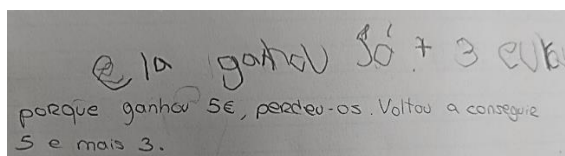 ela ganhou só + 3 euro
porque ganhou 5€, perdeu-os. Voltou a conseguir
5 e mais 3.